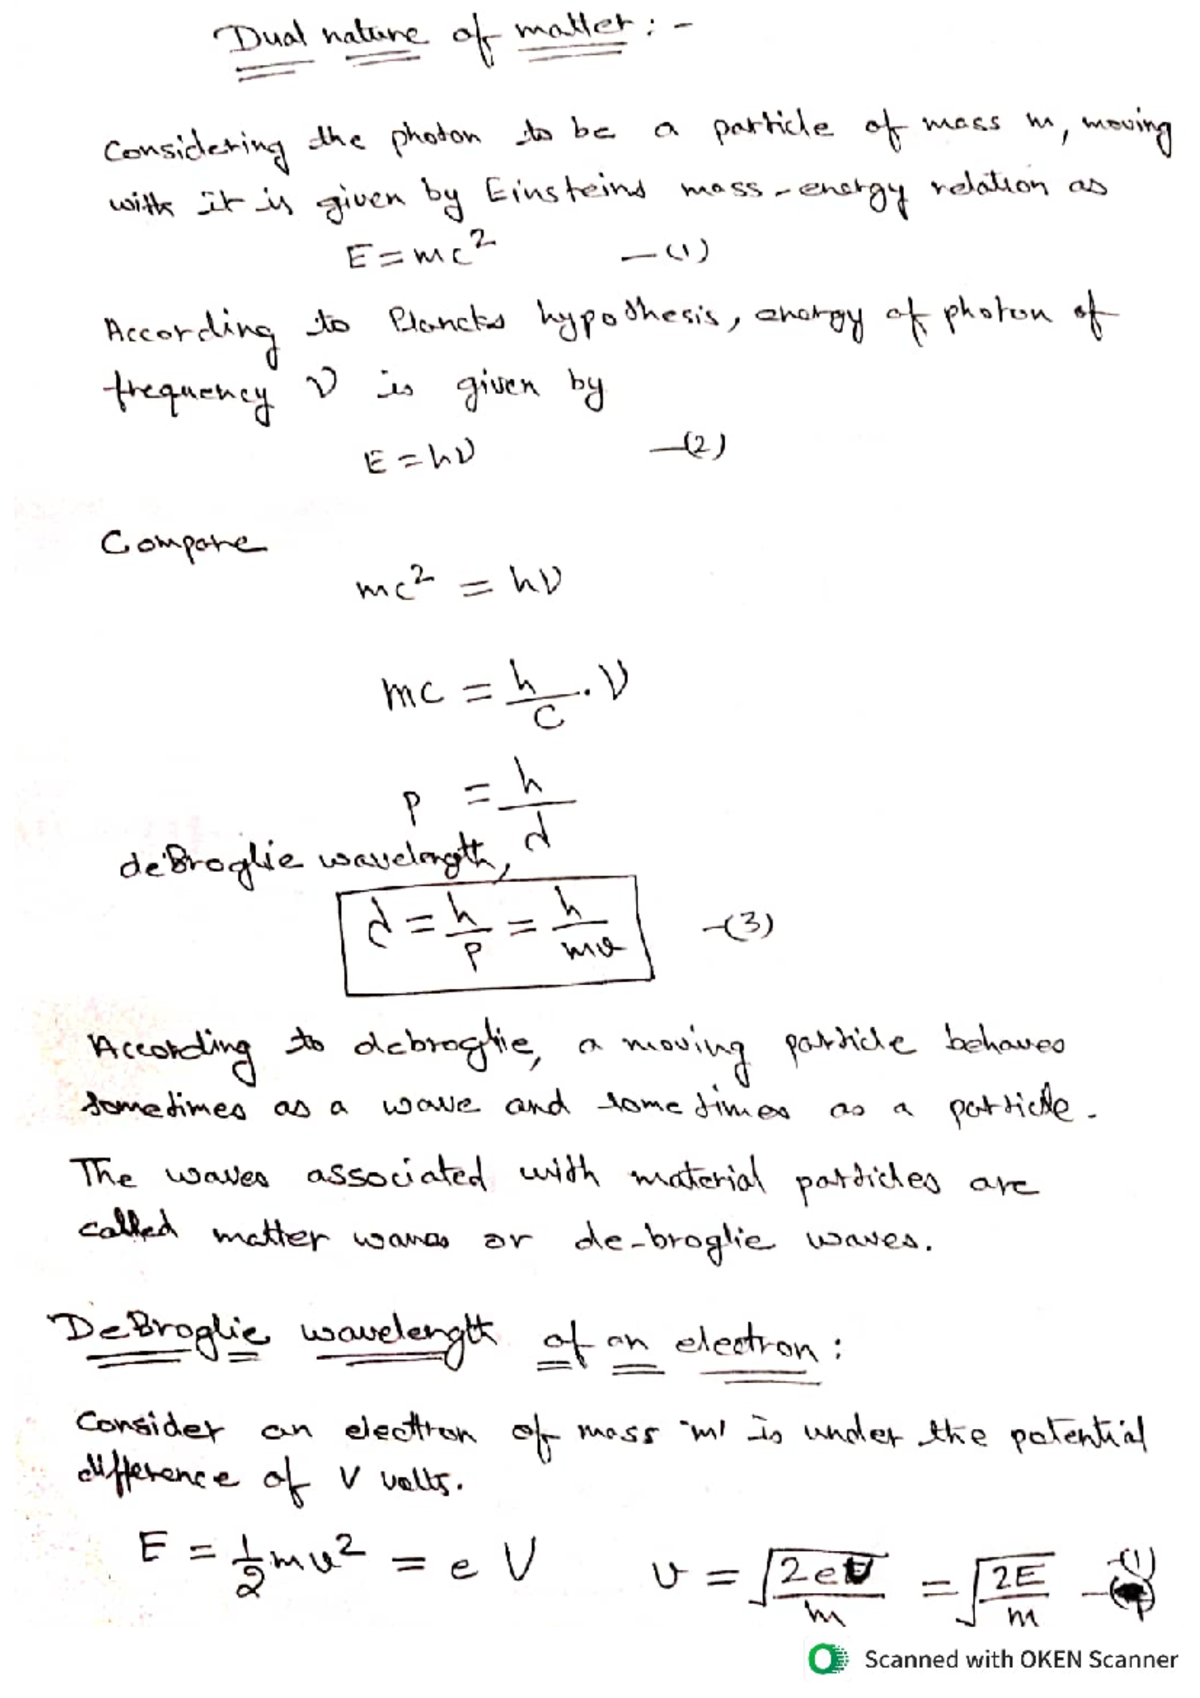 Dual nature of matter : -
Considering the photon to be a particle of mass m, moving
with it is given by Einsteins mass-energy relation as
E = mc² —(1)
According to Plancks hypothesis, energy of photon of
frequency ν is given by
E = hν —(2)
Compare
mc² = hν
mc = h/c . ν
p = h/λ
deBroglie wavelength,
λ = h/p = h/mv —(3)
According to debroglie, a moving particle behaves
sometimes as a wave and sometimes as a particle.
The waves associated with material particles are
called matter waves or de-broglie waves.
DeBroglie wavelength of an electron :
Consider an electron of mass 'm' is under the potential
difference of V volts.
E = 1/2 mv² = eV v = √2eV/m = √2E/m —(1)
Scanned with OKEN Scanner